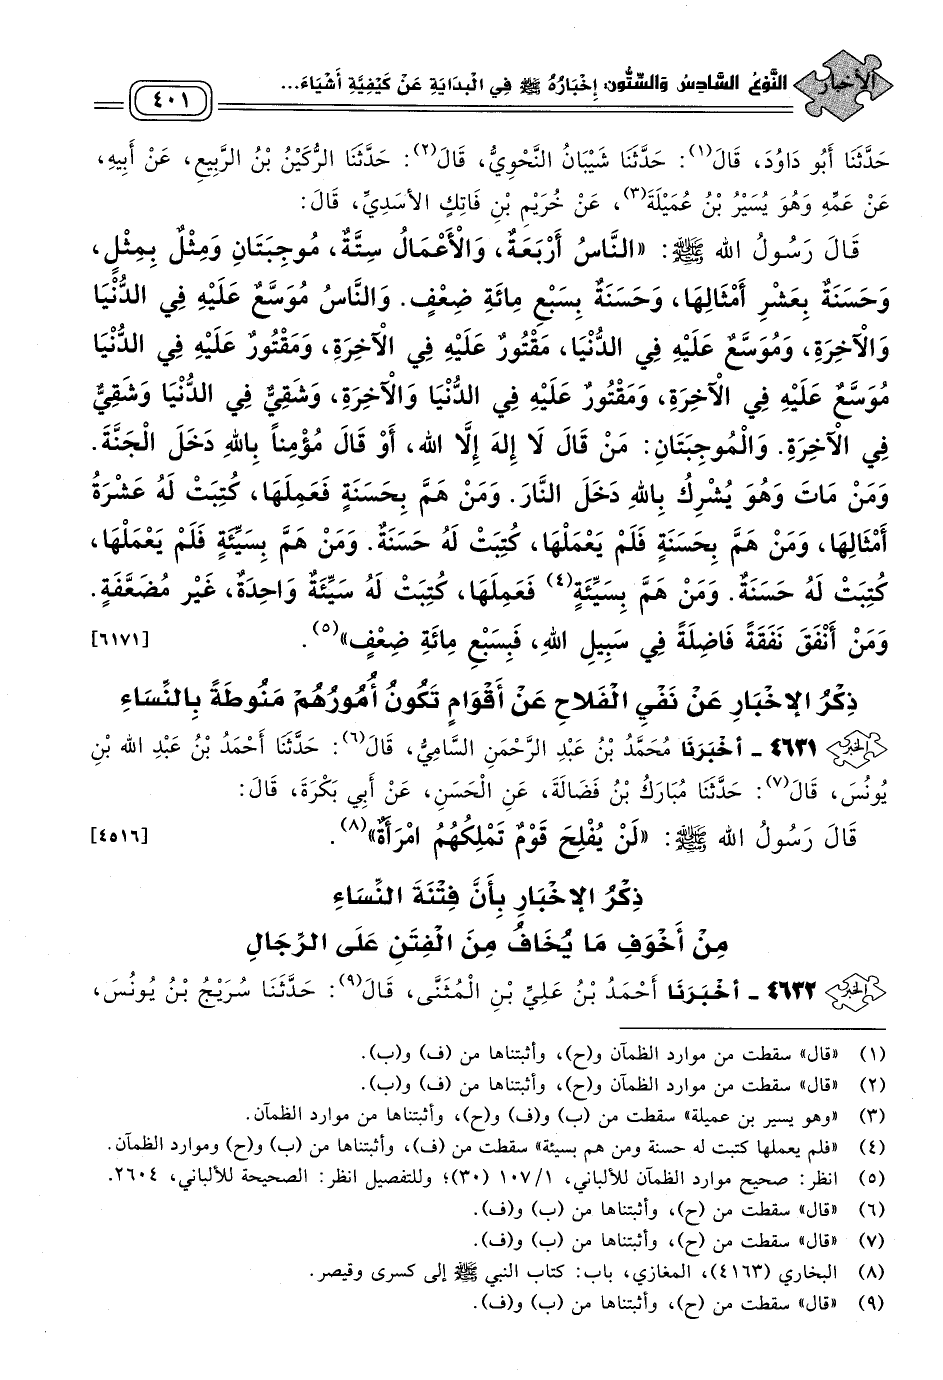 الأخبار
النَّوْعُ السَّادِسُ وَالسِّتُّونَ: إِخْبَارُهُ ﷺ فِي الْبِدَايَةِ عَنْ كَيْفِيَّةِ أَشْيَاءَ...
٤٠١
حَدَّثَنَا أَبُو دَاوُدَ، قَالَ(١): حَدَّثَنَا شَيْبَانُ النَّحْوِيُّ، قَالَ(٢): حَدَّثَنَا الرُّكَيْنُ بْنُ الرَّبِيعِ، عَنْ أَبِيهِ،
عَنْ عَمِّهِ وَهُوَ يُسَيْرُ بْنُ عُمَيْلَةَ(٣)، عَنْ خُرَيْمِ بْنِ فَاتِكٍ الأَسَدِيِّ، قَالَ:
قَالَ رَسُولُ الله ﷺ: «النَّاسُ أَرْبَعَةٌ، وَالْأَعْمَالُ سِتَّةٌ، مُوجِبَتَانِ وَمِثْلٌ بِمِثْلٍ،
وَحَسَنَةٌ بِعَشْرِ أَمْثَالِهَا، وَحَسَنَةٌ بِسَبْعِ مِائَةِ ضِعْفٍ. وَالنَّاسُ مُوَسَّعٌ عَلَيْهِ فِي الدُّنْيَا
وَالْآخِرَةِ، وَمُوَسَّعٌ عَلَيْهِ فِي الدُّنْيَا، مَقْتُورٌ عَلَيْهِ فِي الْآخِرَةِ، وَمَقْتُورٌ عَلَيْهِ فِي الدُّنْيَا
مُوَسَّعٌ عَلَيْهِ فِي الْآخِرَةِ، وَمَقْتُورٌ عَلَيْهِ فِي الدُّنْيَا وَالْآخِرَةِ، وَشَقِيٌّ فِي الدُّنْيَا وَشَقِيٌّ
فِي الْآخِرَةِ. وَالْمُوجِبَتَانِ: مَنْ قَالَ لَا إِلهَ إِلَّا الله، أَوْ قَالَ مُؤْمِناً بِاللهِ دَخَلَ الْجَنَّةَ.
وَمَنْ مَاتَ وَهُوَ يُشْرِكُ بِاللهِ دَخَلَ النَّارَ. وَمَنْ هَمَّ بِحَسَنَةٍ فَعَمِلَهَا، كُتِبَتْ لَهُ عَشْرَةُ
أَمْثَالِهَا، وَمَنْ هَمَّ بِحَسَنَةٍ فَلَمْ يَعْمَلْهَا، كُتِبَتْ لَهُ حَسَنَةٌ. وَمَنْ هَمَّ بِسَيِّئَةٍ فَلَمْ يَعْمَلْهَا،
كُتِبَتْ لَهُ حَسَنَةٌ. وَمَنْ هَمَّ بِسَيِّئَةٍ(٤) فَعَمِلَهَا، كُتِبَتْ لَهُ سَيِّئَةٌ وَاحِدَةٌ، غَيْر مُضَعَّفَةٍ.
وَمَنْ أَنْفَقَ نَفَقَةً فَاضِلَةً فِي سَبِيلِ اللهِ، فَبِسَبْعِ مِائَةِ ضِعْفٍ»(٥). [٦١٧١]
ذِكْرُ الإِخْبَارِ عَنْ نَفْيِ الْفَلَاحِ عَنْ أَقْوَامٍ تَكُونُ أُمُورُهُمْ مَنُوطَةً بِالنِّسَاءِ
الأخبار ٤٦٣١ - أَخْبَرَنَا مُحَمَّدُ بْنُ عَبْدِ الرَّحْمَنِ السَّامِيُّ، قَالَ(٦): حَدَّثَنَا أَحْمَدُ بْنُ عَبْدِ الله بْنِ
يُونُسَ، قَالَ(٧): حَدَّثَنَا مُبَارَكُ بْنُ فَضَالَةَ، عَنِ الْحَسَنِ، عَنْ أَبِي بَكْرَةَ، قَالَ:
قَالَ رَسُولُ الله ﷺ: «لَنْ يُفْلِحَ قَوْمٌ تَمْلِكُهُمُ امْرَأَةٌ»(٨). [٤٥١٦]
ذِكْرُ الإِخْبَارِ بِأَنَّ فِتْنَةَ النِّسَاءِ
مِنْ أَخْوَفِ مَا يُخَافُ مِنَ الْفِتَنِ عَلَى الرِّجَالِ
الأخبار ٤٦٣٢ - أَخْبَرَنَا أَحْمَدُ بْنُ عَلِيِّ بْنِ الْمُثَنَّى، قَالَ(٩): حَدَّثَنَا سُرَيْجُ بْنُ يُونُسَ،
(١) «قال» سقطت من موارد الظمآن و(ح)، وأثبتناها من (ف) و(ب).
(٢) «قال» سقطت من موارد الظمآن و(ح)، وأثبتناها من (ف) و(ب).
(٣) «وهو يسير بن عميلة» سقطت من (ب) و(ف) و(ح)، وأثبتناها من موارد الظمآن.
(٤) «فلم يعملها كتبت له حسنة ومن هم بسيئة» سقطت من (ف)، وأثبتناها من (ب) و(ح) وموارد الظمآن.
(٥) انظر: صحيح موارد الظمآن للألباني، ١/ ١٠٧ (٣٠)؛ وللتفصيل انظر: الصحيحة للألباني، ٢٦٠٤.
(٦) «قال» سقطت من (ح)، وأثبتناها من (ب) و(ف).
(٧) «قال» سقطت من (ح)، وأثبتناها من (ب) و(ف).
(٨) البخاري (٤١٦٣)، المغازي، باب: كتاب النبي ﷺ إلى كسرى وقيصر.
(٩) «قال» سقطت من (ح)، وأثبتناها من (ب) و(ف).